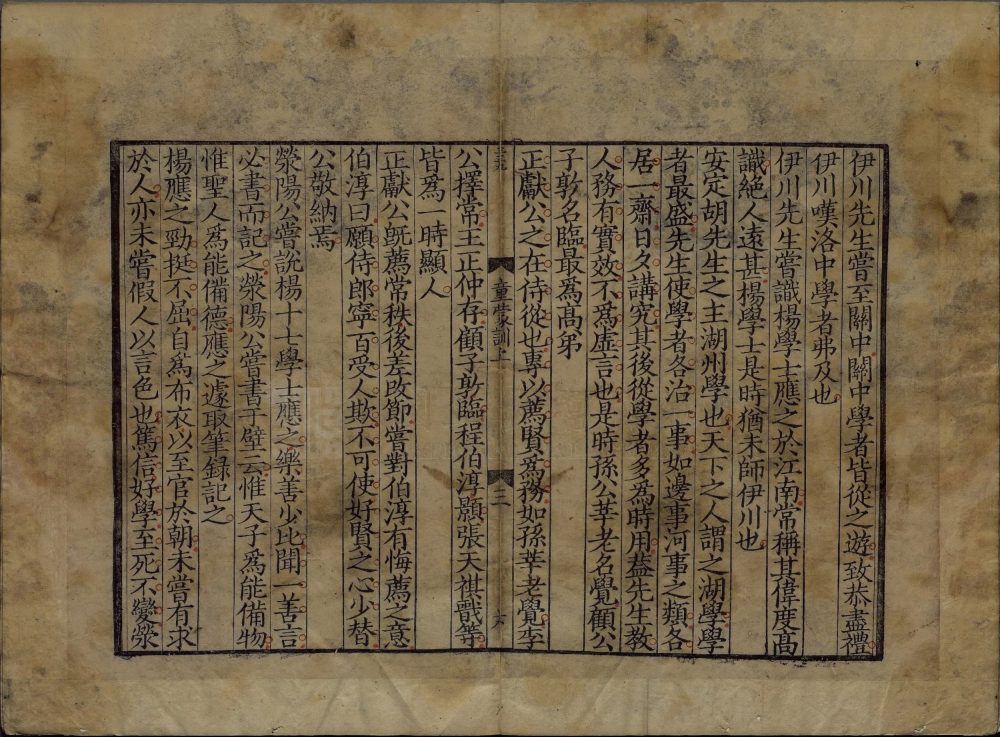 伊川先生嘗至關中關中學者皆從之遊致恭盡禮
伊川嘆洛中學者弗及也
伊川先生嘗識楊學士應之於江南常稱其偉度高
識絶人遠甚楊學士是時猶未師伊川也
安定胡先生之主湖州學也天下之人謂之湖學學
者最盛先生使學者各治一事如邊事河事之類各
居一齋日夕講究其後從學者多爲時用蓋先生教
人務有實效不爲虚言也是時孫公莘老名覺顧公
子敦名臨最爲高弟
正獻公之在侍從也專以薦賢爲務如孫莘老覺李
童蒙訓上
三
公擇常王正仲存顧子敦臨程伯淳顥張天祺戩等
皆爲一時顯人
正獻公旣薦常秩後差改節嘗對伯淳有悔薦之意
伯淳曰願侍郎寧百受人欺不可使好賢之心少替
公敬納焉
滎陽公嘗說楊十七學士應之樂善少比聞一善言
必書而記之滎陽公嘗書于壁云惟天子爲能備物
惟聖人爲能備德應之遽取筆録記之
楊應之勁挺不屈自爲布衣以至官於朝未嘗有求
於人亦未嘗假人以言色也篤信好學至死不變滎